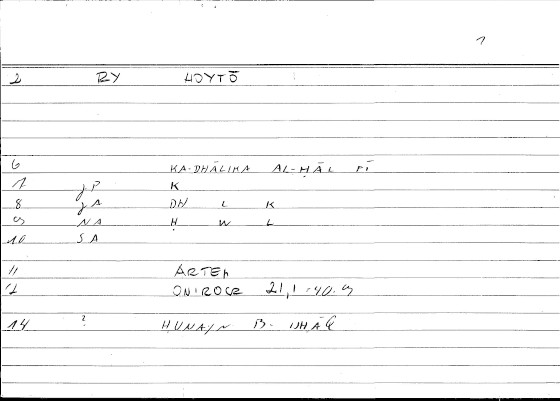 1
2 RY HOYTŌ
6 KA-DHĀLIKA AL-ḤĀL FĪ
7 JP K
8 JA DH L K
9 NA Ḥ W L
10 SA
11 ARTEM
12 ONIROCR 21,1-40.9
14 ? HUNAYN B. ISHĀQ